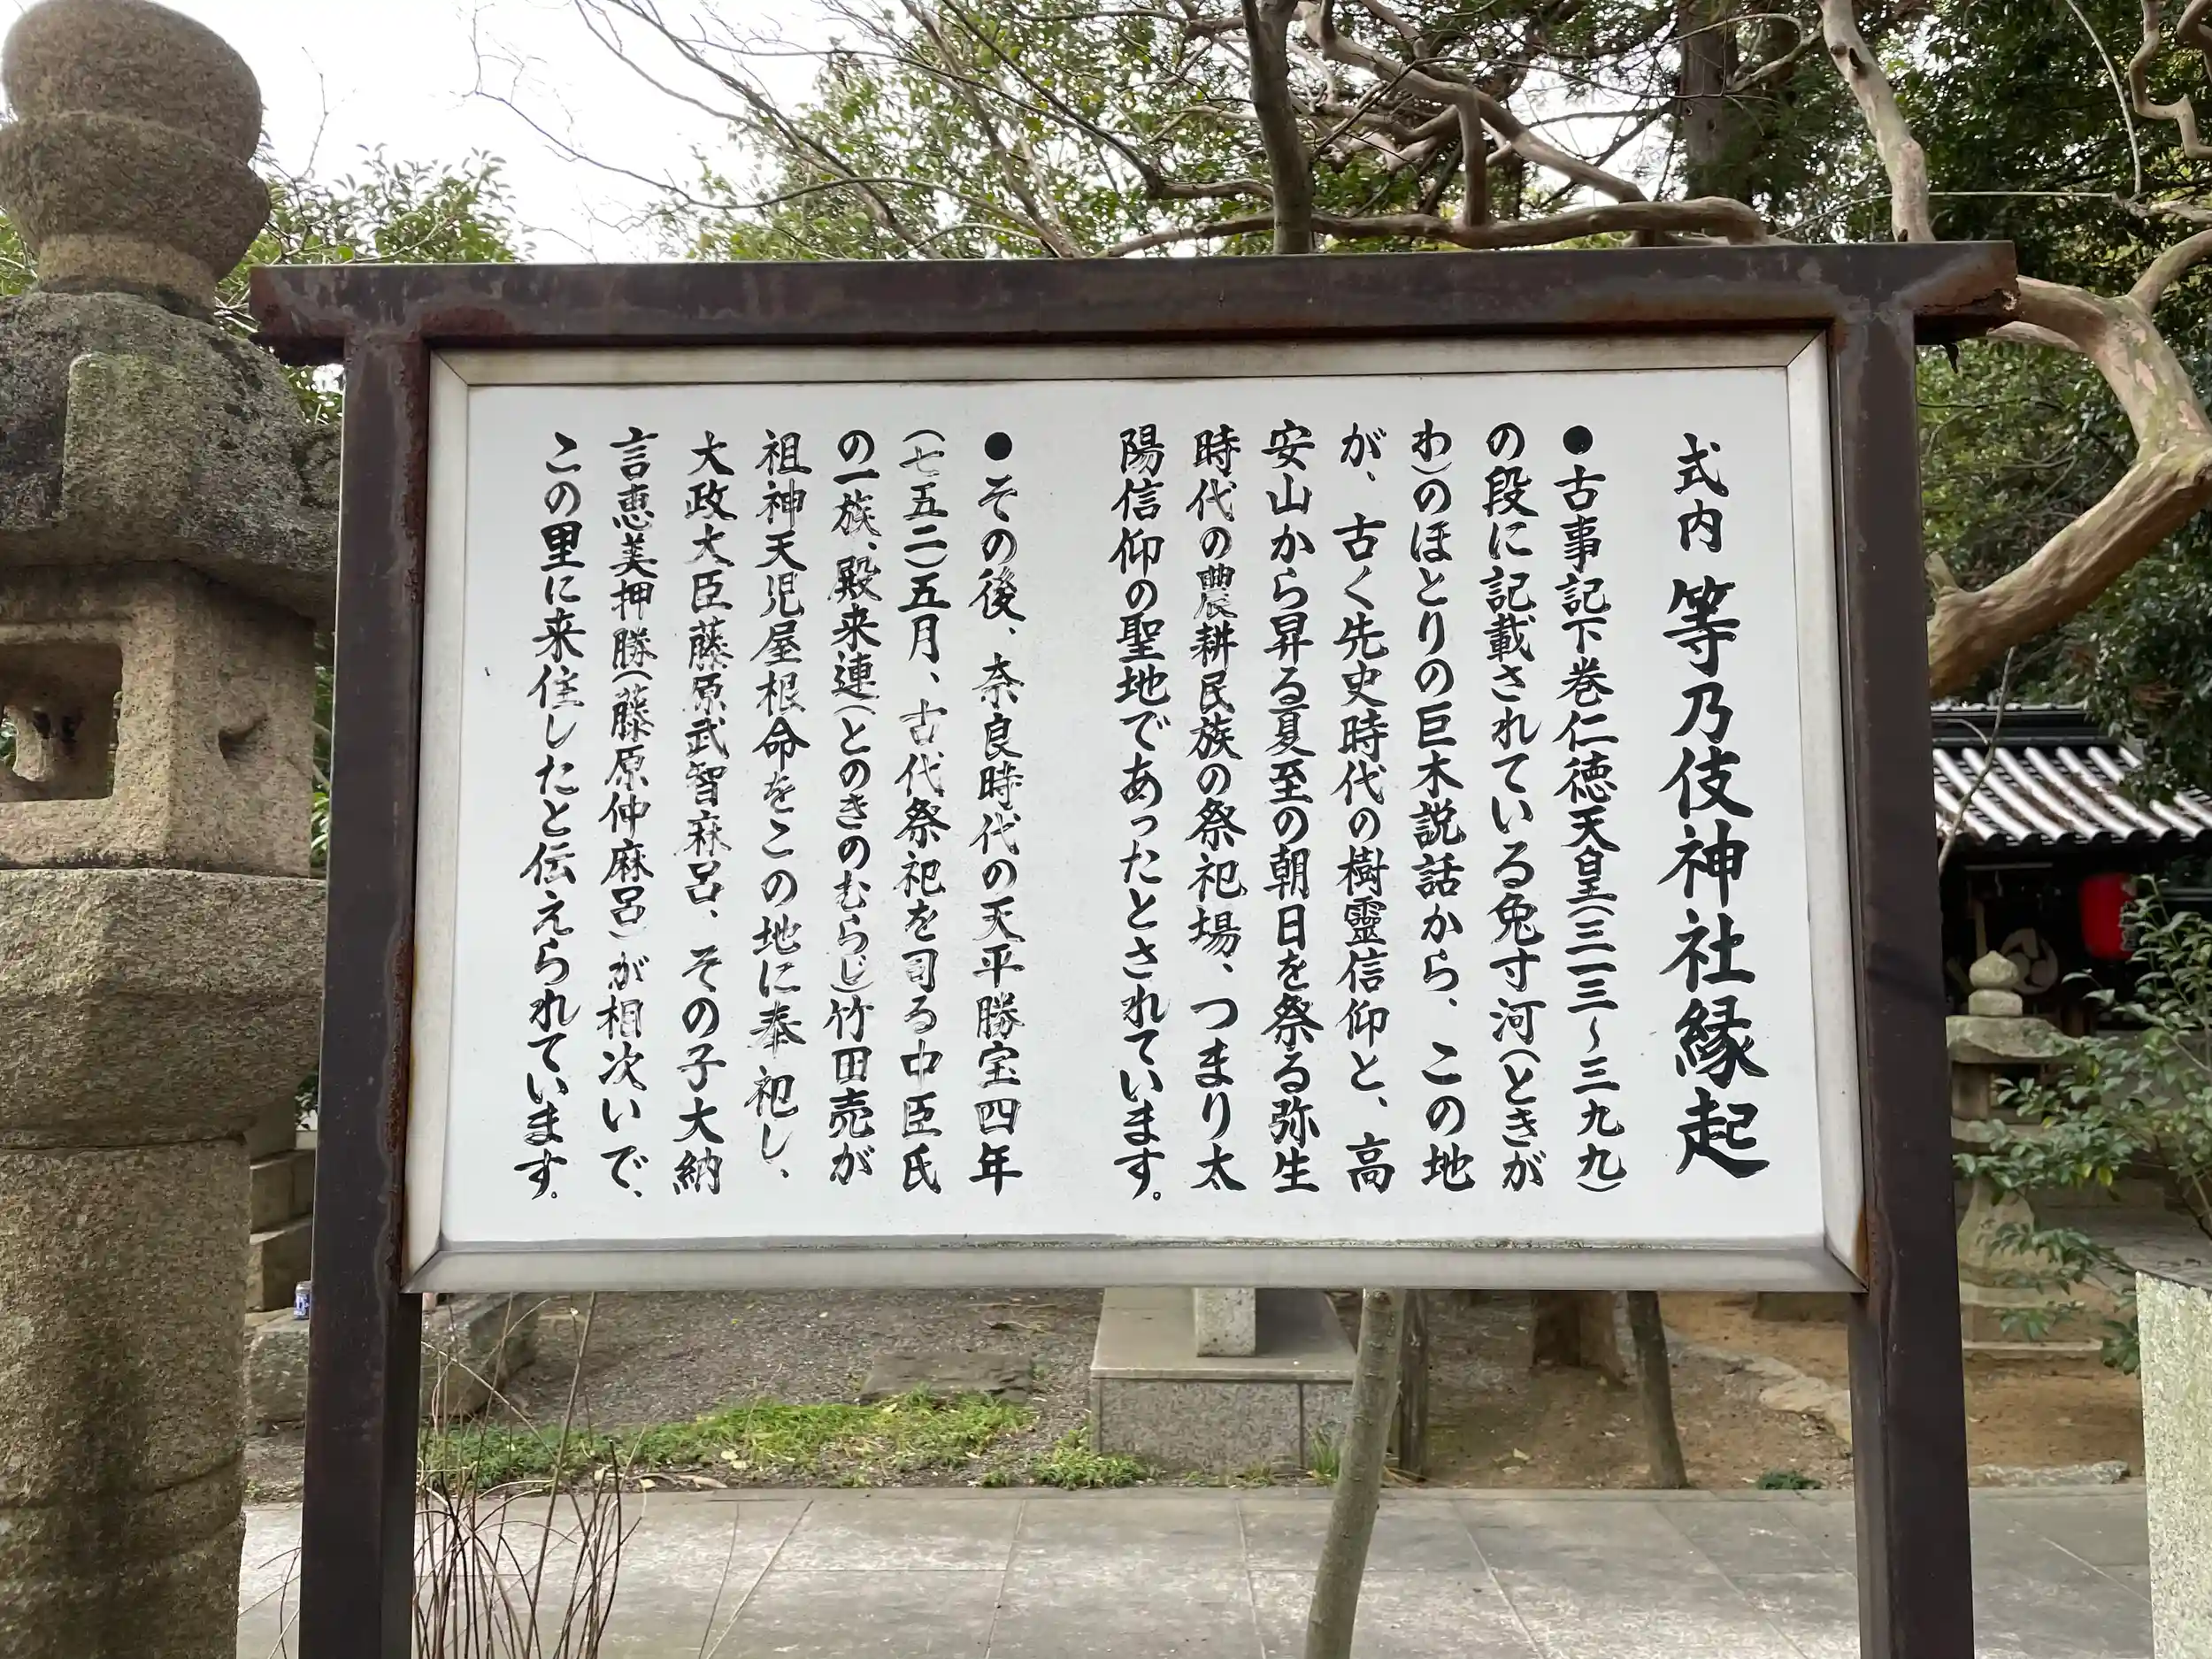 式内 等乃伎神社縁起
●古事記下巻仁徳天皇(三一三～三九九)
の段に記載されている兔寸河(ときが
わ)のほとりの巨木説話から、この地
が、古く先史時代の樹靈信仰と、高
安山から昇る夏至の朝日を祭る弥生
時代の農耕民族の祭祀場、つまり太
陽信仰の聖地であったとされています。
●その後、奈良時代の天平勝宝四年
(七五二)五月、古代祭祀を司る中臣氏
の一族、殿来連(とのきのむらじ)竹田売が
祖神天児屋根命をこの地に奉祀し、
大政大臣藤原武智麻呂、その子大納
言恵美押勝(藤原仲麻呂)が相次いで、
この里に来住したと伝えられています。